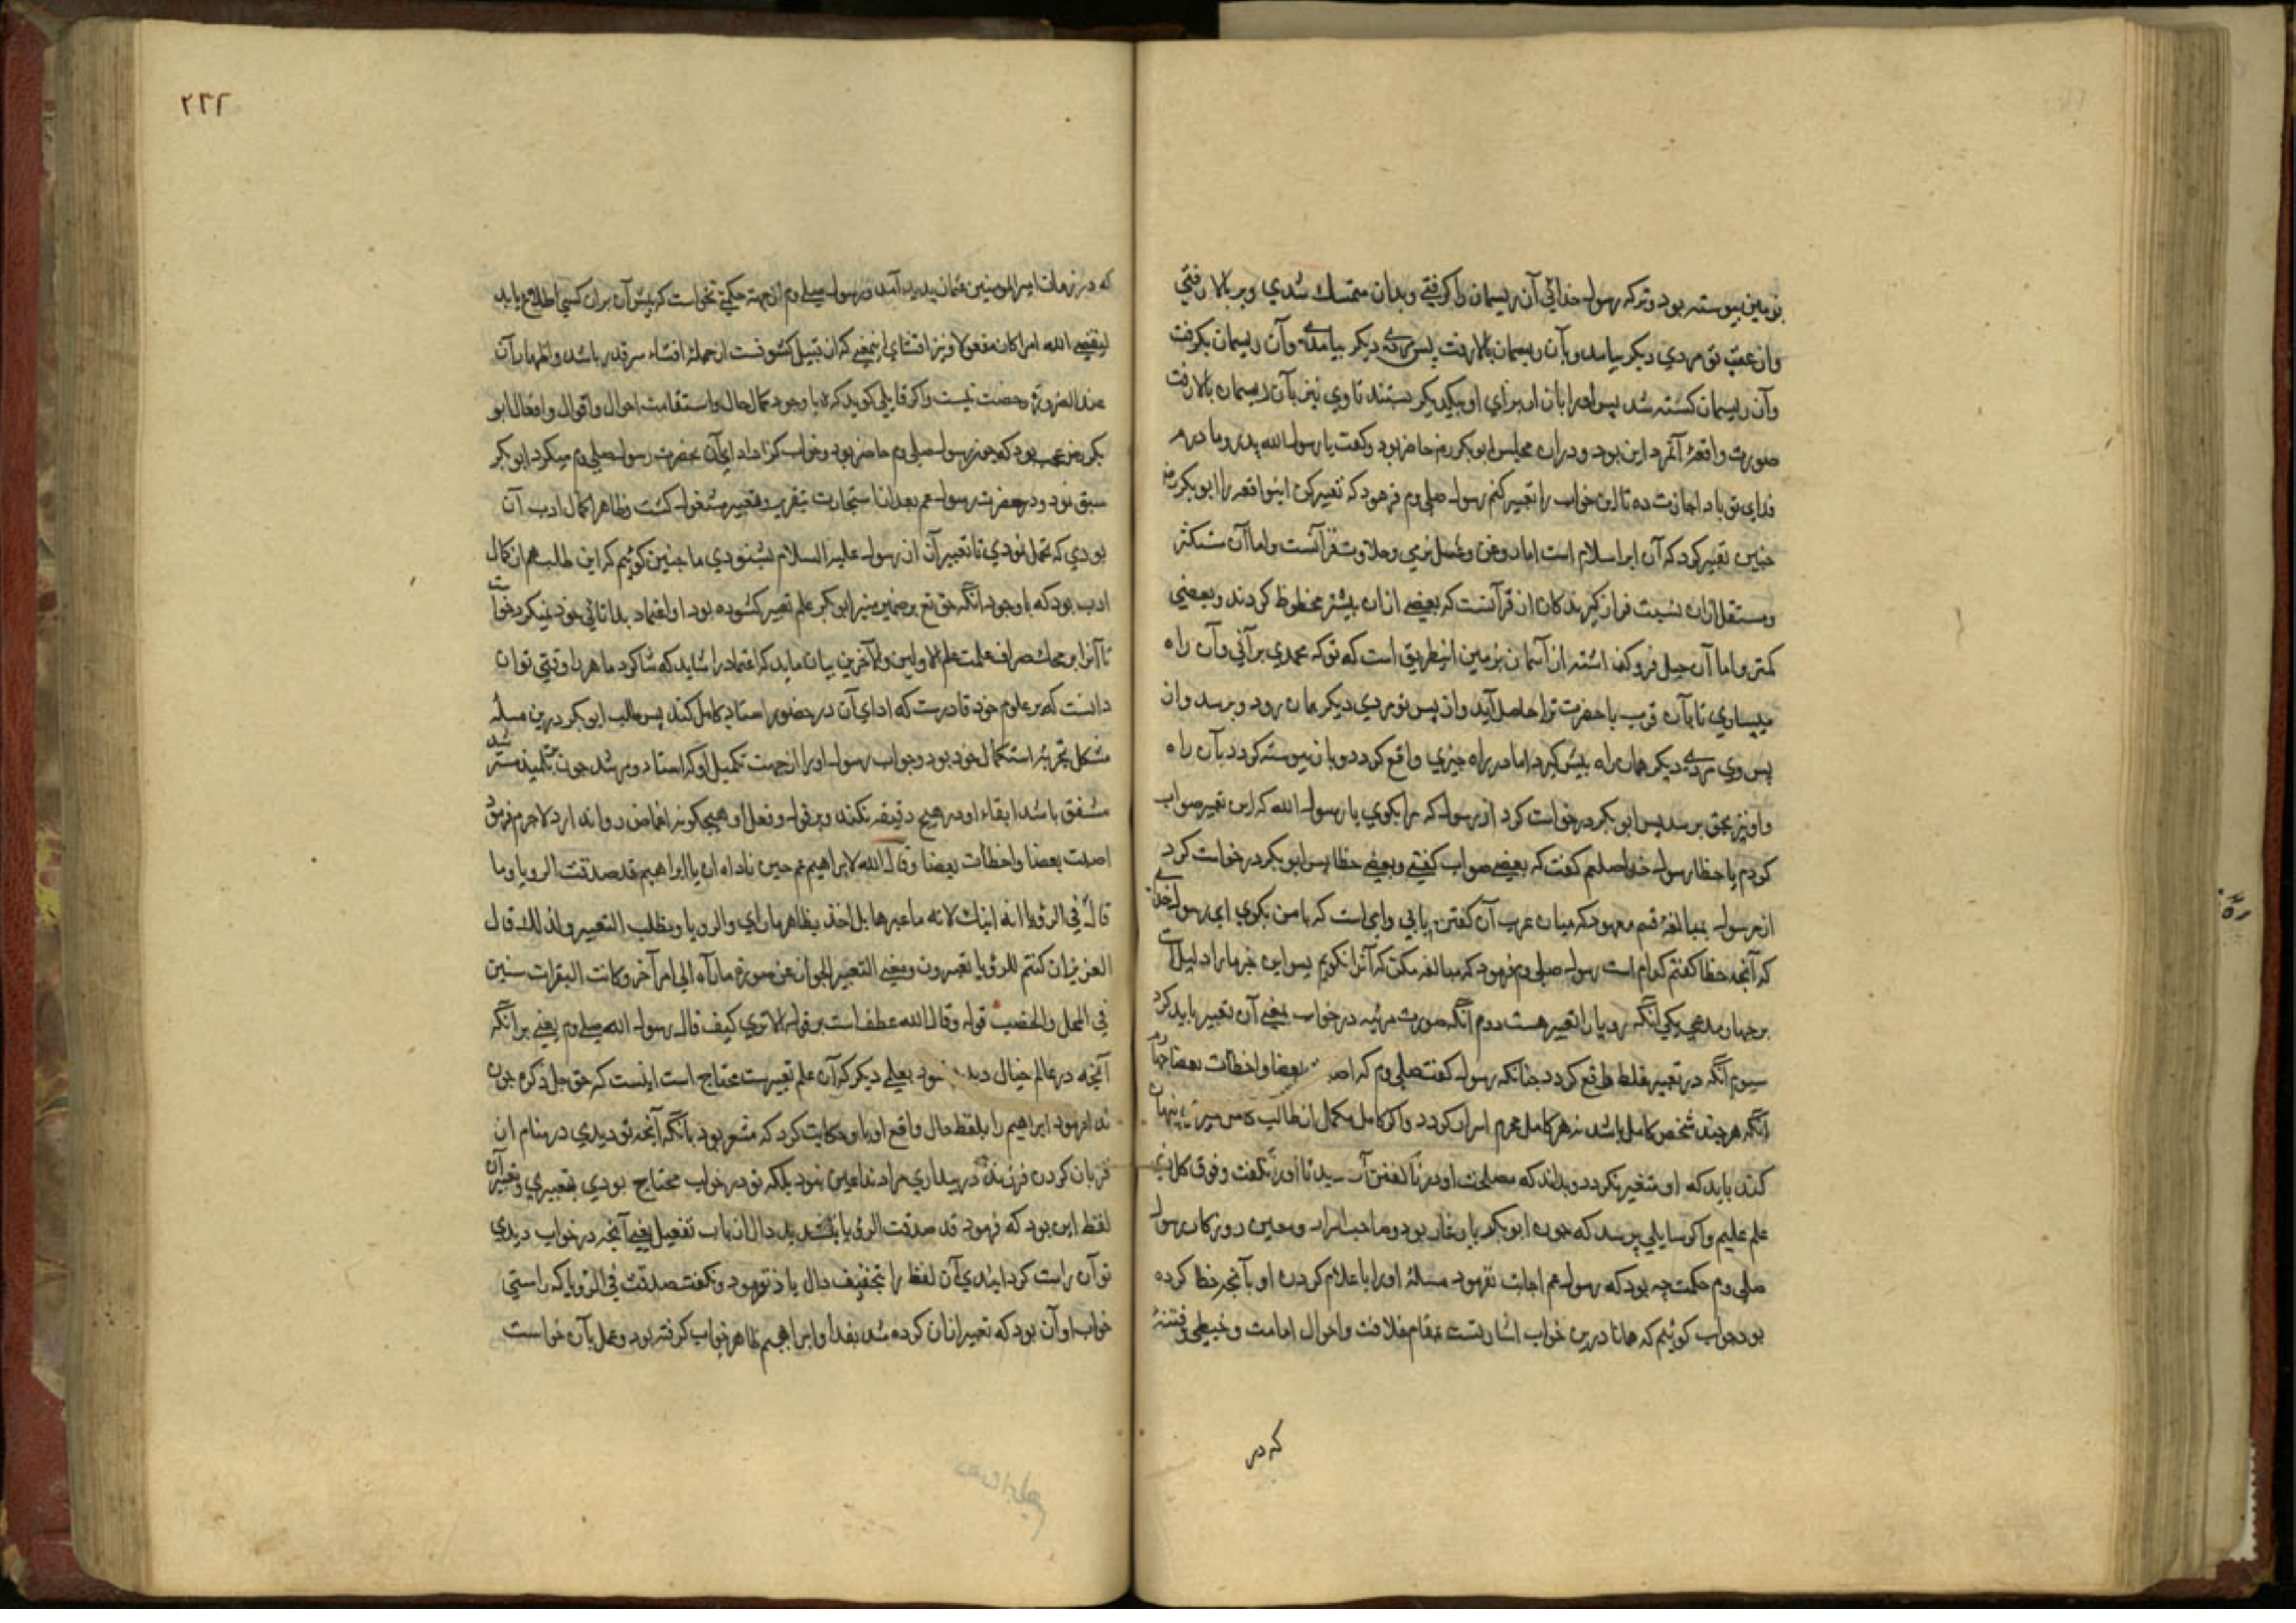 بزمین پیوسته بود و تو که رسول خدائی آن ریسمان را کرفتی وبدان متمسك شدی وبر بالا رفتی
واز عقب تو مردی دیکر بیامد وبآن ریسمان بالا رفت پس مردی دیکر بیامد وآن ریسمان بکرفت
وآن ریسمان کسسته شد پس اورا باز از برای او بیکدیکر بستند تا وی نیز بآن ریسمان بالا رفت
صورت واقعهٔ آنمرد این بود ودران مجلس ابو بکر رضه حاضر بود وکفت یا رسول الله پدر وما درم
فدای تو باد اجازت ده تا این خواب را تعبیر کنم رسول صلی وم فرمود که تعبیر کن اینواقعه را ابو بکر رضه
چنین تعبیر کرد که آن ابر اسلام است اما روغن وعسل نرمی وحلاوت قرآنست واما آن ستکثر
ومستقل ازان نسبت فراز کیرند کان از قرآنست که بعضی ازان بیشتر محظوظ کردند وبعضی
کمتر واما آن حبل فرو کذ اشته از آسمان بزمین انطریق است که تو که محمدی برآنی وآن راه
میسپاری تا بآن قرب با حضرت ترا حاصل آید واز پس تو مردی دیکر بان رود وبرسد واز
پس وی مردی دیکر همان راه پیش کیرد اما در راه چیزی واقع کردد وباز پیوسته کردد بآن راه
واو نیز بحق برسد پس ابو بکر درخواست کرد از رسول که مرا بکوی یا رسول الله که این تعبیر صواب
کردم یا خطا رسول خدا صلعم کفت که بعضی صواب کفتی وبعضی خطا پس ابو بکر درخواست کرد
از رسول بمبالغهٔ قسم معهود که میان عرب آن کفتن بابی وامی است که با من بکوی ای رسول خدای
که آنچه خطا کفتم کدام است رسول صلی وم فرمود که مبالغه مکن که آنرا نکویم پس این خبر مارا دلیل است
بر چهار مدعی یکی آنکه رویا را تعبیر هست دوم آنکه صورت مرئیه در خواب بمعنی آن تعبیر باید کرد
سیوم آنکه در تعبیر غلط واقع کردد چنانکه رسول کفت صلی وم که بعضا واخطات بعضا چهارم
آنکه هر چند شخص کامل باشد نه هر کامل محرم اسرار کردد واکر کامل مکمل از طالب پنهان
کند باید که او متغیر نکردد وبداند که مصلحت او در ناکفتن آن تا اورا نکفت وفوق کل ذی
علم علیم واکر سایلی پرسد که چون ابو بکر یار غار بود وصاحب اسرار ومعین روزکار رسول
صلی وم حکمت چه بود که رسول عم اجابت نفرمود مسئله اورا با علام کردن او بآنچه خطا کرده
بود جواب کوئیم که همانا درین خواب اشارتست بمقام خلافت واحوال امامت وخبطی وفتنهٔ
که در
٢٢٢
که در زمان امیر المومنین عثمان پدید آمد ورسول صلی وم از جهة حکمتی نخواست که پیش آن بران کسی اطلاع یابد
لیقضی الله امرا کان مفعولا ونیز افشای اینمعنی که از قبیل کشوفست از جملهٔ افشاء سر قدر باشد واظهار آن
عند الضرورة رخصت نیست واکر قایلی کوید که با وجود کمال حال واستقامت احوال واقوال وافعال ابو
بکر رضه عجب بود که چون رسول صلی وم حاضر بود وخواب کزار ادای آن بحضرت رسول صلی وم میکرد ابو بکر
سبق نمود ودر حضرت رسول عم بعد از استجازت بتقریر وتعبیر مشغول کشت وظاهرا کمال ادب آن
بودی که تحمل نمودی تا تعبیر آن از رسول علیه السلام بشنودی ما چنین کوئیم که این طلب هم از کمال
ادب بود که با وجود آنکه حق تع بر ضمیر منیر ابو بکر علم تعبیر کشوده بود او اعتماد بدانائی خود نمیکرد خواست
تا آنرا بر محك صراف علمت علم الاولین والآخرین بیان ماید که اعتماد را شاید که شاکرد ماهر را وقتی توان
دانست که بر علوم خود قادرست که ادای آن در حضور استاد کامل کند پس طلب ابو بکر درین مسئله
مشکل تجربهٔ استکمال خود بود وجواب رسول اورا از جهت تکمیل او که استاد ومرشد چون بتلمیذ مسترشد
مشفق باشد ابقاء او در هیچ دقیقه نکند وبر قول وفعل او هیچکونه اغماض روا ندارد لا جرم فرمود
اصبت بعضا واخطأت بعضا وقال الله لابراهیم عم حین ناداه ان یا ابراهیم قد صدقت الرویا وما
قال فی الرؤیا انه ابنك لانه ما عبرها بل اخذ بظاهر ما رای والرویا ویطلب التعبیر ولذلك قال
العزیز ان کنتم للرؤیا تعبرون ومعنی التعبیر الجواز عن صورة ما رآه الی امر آخر وکانت البقرات سنین
فی المحل والخصب قوله وقال الله عطف است بر قوله الا تری کیف قال رسول الله صلی وم یعنی بر آنکه
آنچه در عالم خیال دیده شود بعلمی دیکر که آن علم تعبیرست محتاج است اینست که حق جل ذکره چون
ندا فرمود ابراهیم را بلفظ حال واقع اورا حکایت کرد که مشعر بود بآنکه آنچه تو دیدی در منام از
قربان کردن فرزند در بیداری مراد نه آن عین بود بلکه تو در خواب محتاج بودی بتعبیری وتعبیر آن
لفظ این بود که فرمود قد صدقت الرؤیا بتشدید دال از باب تفعیل یعنی آنچه در خواب دیدی
تو آن راست کردانیدی آن لفظ را بتخفیف دال یاد نفرمود ونکفت صدقت فی الرؤیا که راستی
خواب او آن بود که تعبیر ازان کرده شد بفدا وابراهیم ظاهر خواب کرفته بود وعمل بآن خواست